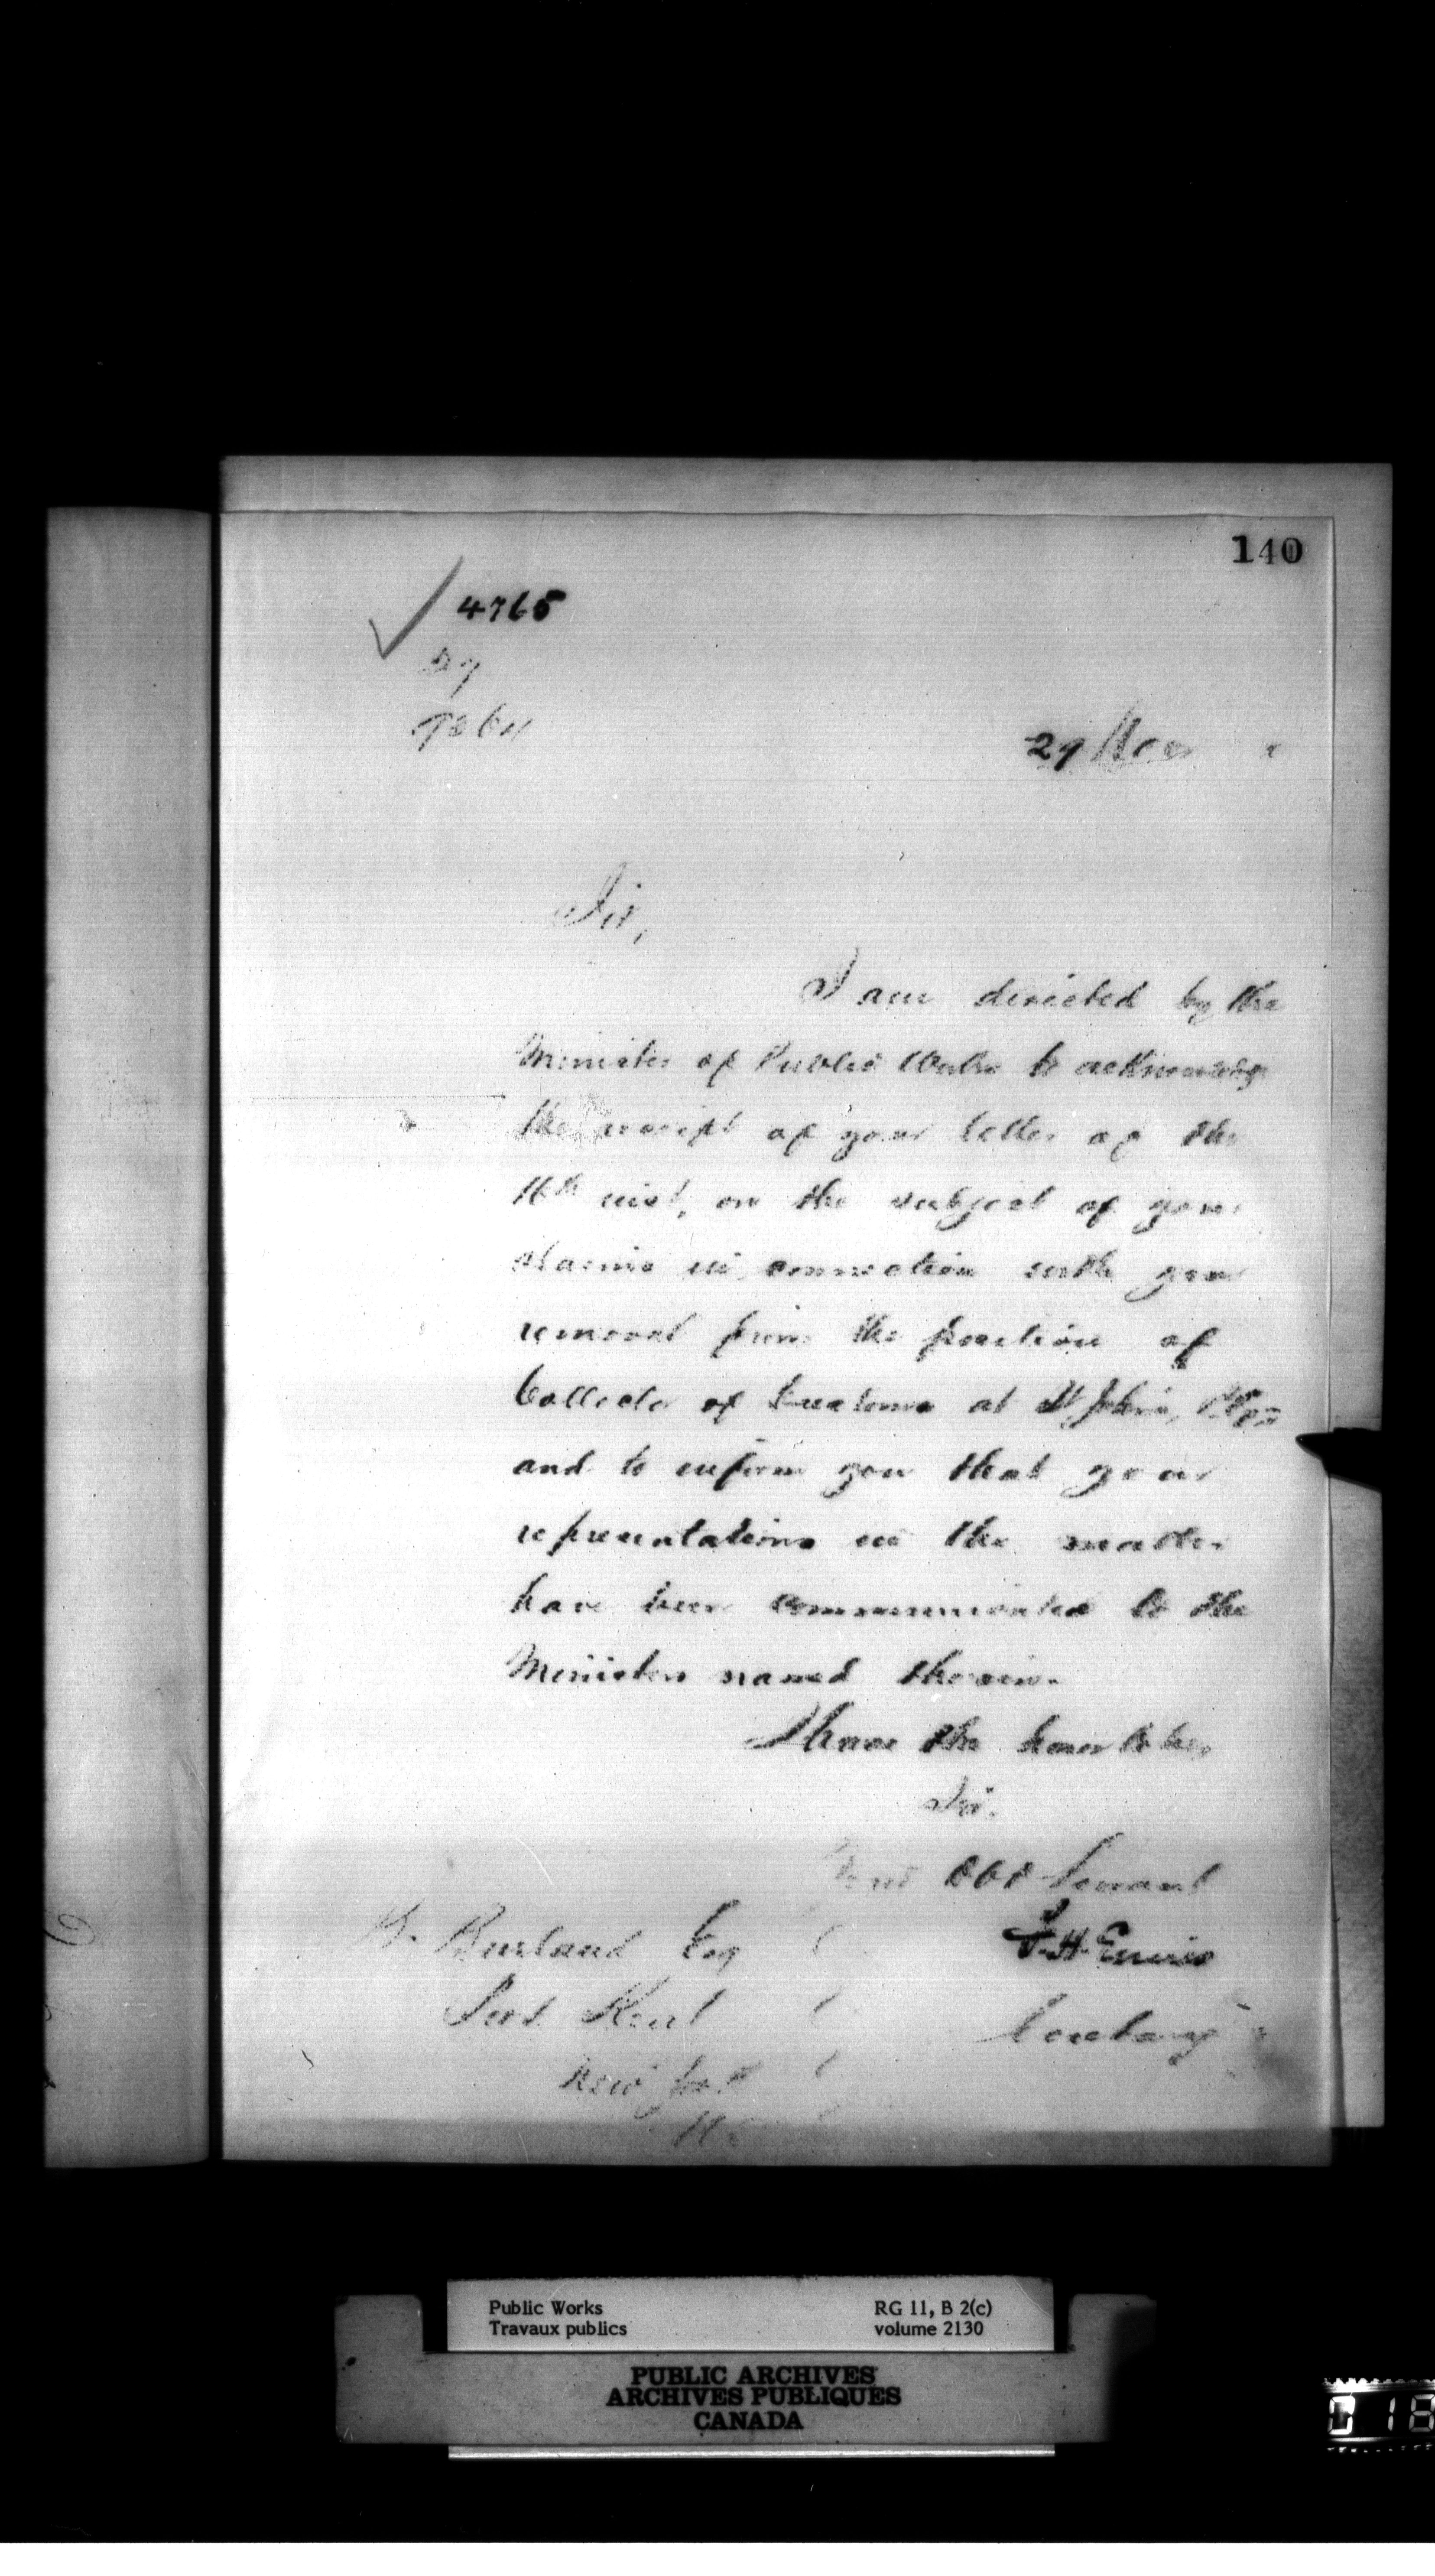 140
4765
29
Sir,
I am directed by the
Minister of Public Works to acknowledge
the receipt of your letter of the
16th inst, on the subject of your
claims in connection with your
removal from the position of
Collector of Customs at St Johns,
and to inform you that your
representations in the matter
have been communicated to the
Ministers named therein.
I have the honor to be,
Sir.
Your Obt Servant
F. H. Ennis
Burland Esq
Secretary
Port Kent
New York
Public Works
Travaux publics
RG 11, B 2(c)
volume 2130
PUBLIC ARCHIVES
ARCHIVES PUBLIQUES
CANADA